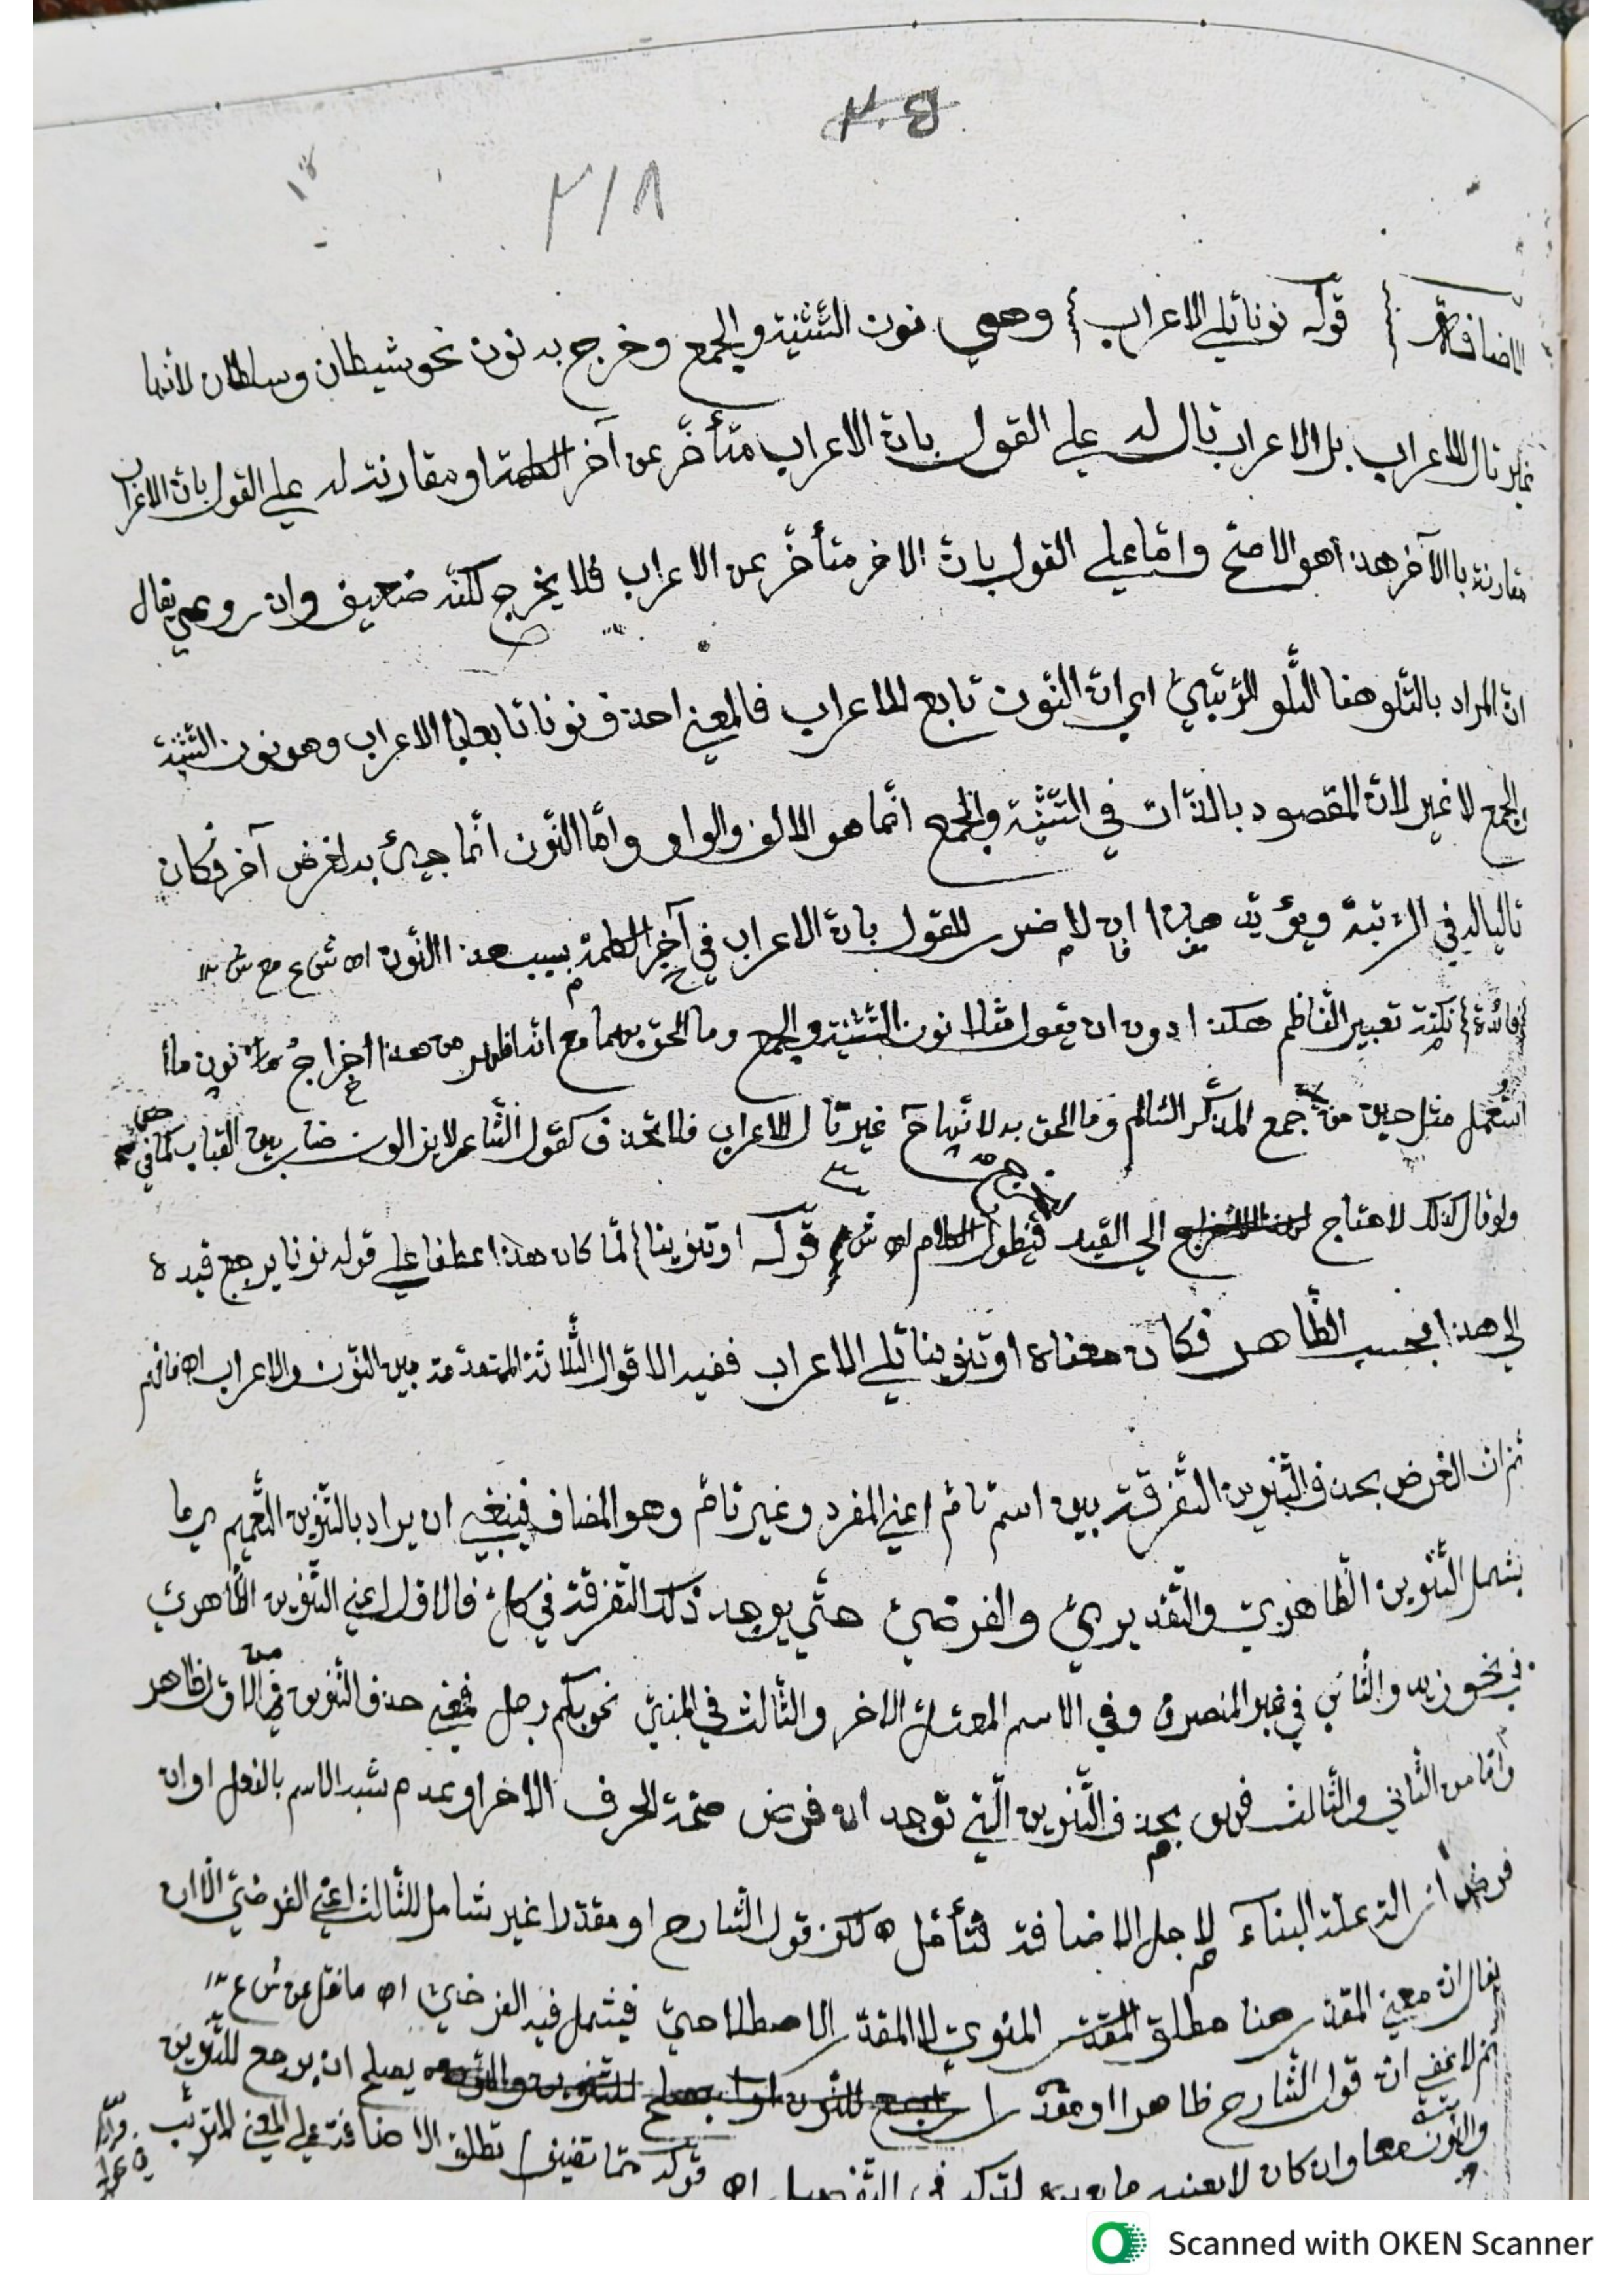 ٢٠٤
٢١٨
الاضافة} قوله نونا تلي الاعراب} وهي نون التثنية والجمع وخرج به نون نحو شيطان وسلطان لأنها
غير تال للاعراب بل الاعراب تال له علي القول بان الاعراب متأخر عن آخر الكلمة او مقارنة له علي القول بان الاعراب
مقارنة باالآخر هذا هو الاصح واما علي القول بان الاخر متأخر عن الاعراب فلا يخرج لكنه ضعيف وان روعي يقال
ان المراد بالتلو هنا التلو الرتبي اي ان النون تابع للاعراب فالمعني احذف نونا تابعا للاعراب وهو نون التثنية
والجمع لا غير لان المقصود بالذات في التثنية والجمع انما هو الالف والواو واما النون انما جيئ به لغرض آخر فكان
تاليا له في الرتبة ويؤيد هذا ان لا ضرر للقول بان الاعراب في آخر الكلمة بسبب هذا النون اه ش ع مع
{فائدة} نكتة تعبير الناظم هكذا دون ان يقول مثلا نون التثنية والجمع وما الحق بهما مع انه اظهر من هذا اخراج نون ما
استعمل مثل حين من جمع المذكر السالم وما الحق به لانها ح غير تال للاعراب فلا تحذف كقول الشاعر لايزالون ضاربين القباب كما في
ولو قال كذلك لاحتاج الي القيد فيطول الكلام اه ش ع قوله او تنوينا} لما كان هذا عطفا علي قوله نونا يرجع قيده
الي هذا بحسب الظاهر فكان معناه او تنوينا تلي الاعراب ففيه الاقوال الثلاثة المتقدمة بين النون والاعراب اه فافهم
ثم ان الغرض بحذف التنوين التفرقة بين اسم تام اعني المفرد وغير تام وهو المضاف فينبغي ان يراد بالتنوين التعميم اي ما
يشمل التنوين الظاهري والتقديري والفرضي حتي يوجد ذلك التفرقة في كل فالاول اعني التنوين الظاهري
في نحو زيد والثاني في غير المنصرف وفي الاسم المعتل الاخر والثالث في المبني نحو كم رجل فمعني حذف التنوين من الاول ظاهر
واما من الثاني والثالث فهو بحذف التنوين التي توجد ان فرض صحة الحرف الاخر او عدم شبه الاسم بالفعل او ان
فرض ازالة علة البناء لاجل الاضافة فتأمل ه لكن قول الشارح او مقدرا غير شامل للثالث اعني الفرضي الا ان
يقال ان معني المقدر هنا مطلق المقدر المنوي لا المقدر الاصطلاحي فيشمل فيه الفرضي اه ما نقل عن ش ع
ثم لا يخفي ان قول الشارح ظاهرا او مقدرا يصلح ان يرجع للتنوين
والنون معا وان كان لا يعنيه ما بعده لتركه في التفصيل اه قوله مما تضيف} تطلق الاضافة علي المعني المترتب
Scanned with OKEN Scanner